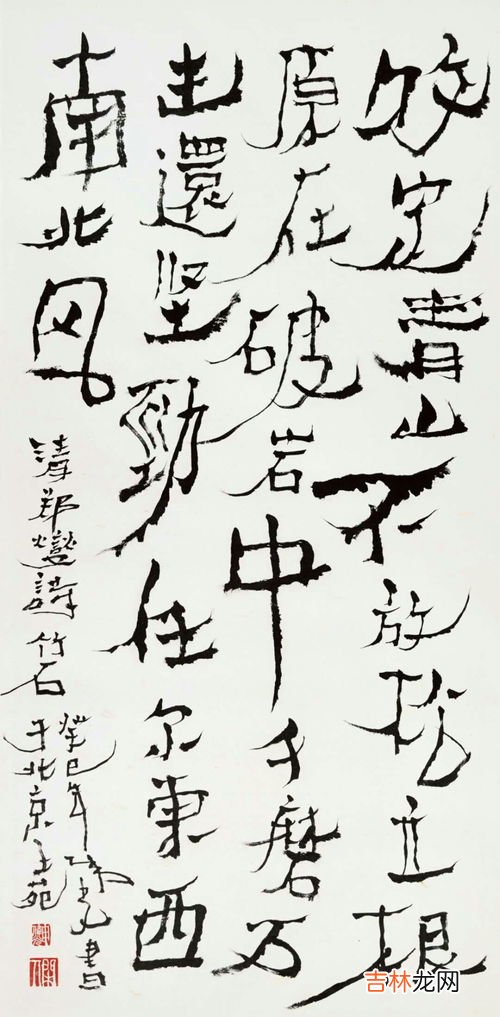 咬定青山不放松立根
原在破岩中千磨万
击還坚勁任尔東西
南北风
清郑燮詩竹石
癸巳年书
于北京苑
吉林龙网